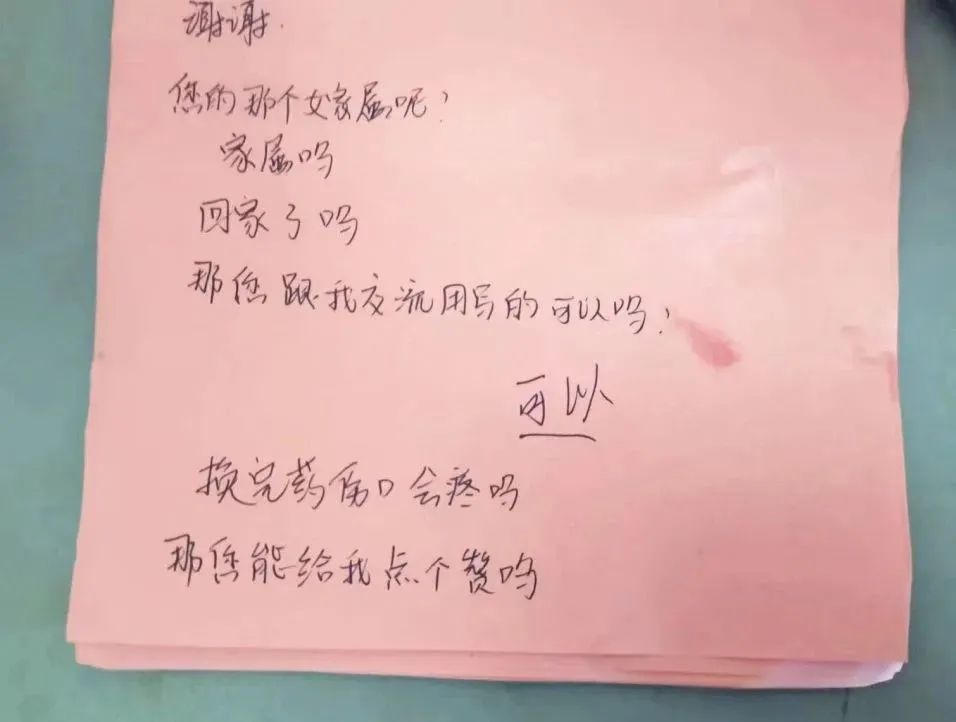 谢谢.
您的那个女家属呢?
家属吗
回家了吗
那您跟我交流用写的可以吗?
可以
换完药伤口会疼吗
那您能给我点个赞吗